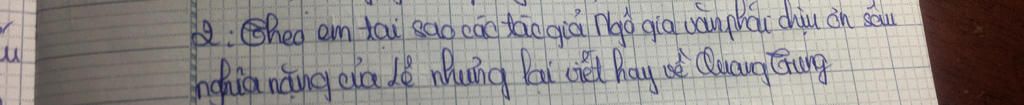 2: Theo em tại sao các tác giả Ngô gia văn phái chịu ơn sâu
nghĩa nặng của Lê nhưng lại viết hay về Quang Trung